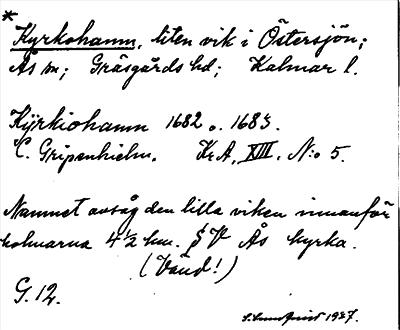 *
Kyrkohamn, liten vik i Östersjön;
Ås sn; Gräsgårds hd; Kalmar l.
Kÿrkiohamn 1682 o. 1683.
C. Gripenhielm. KrA, XIII, N:o 5.
Namnet avsåg den lilla viken innanför
holmarna 4½ km. SV Ås kyrka.
(Vänd!)
G. 12.
S. Sundquist 1937.